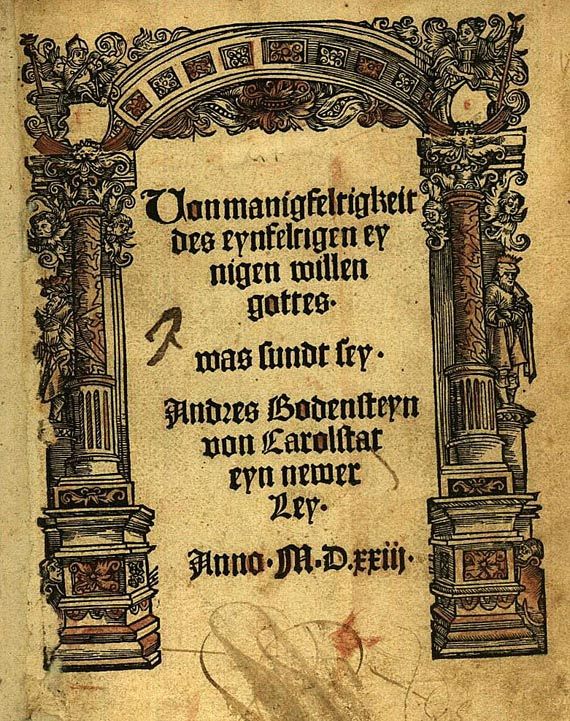 Von manigfeltigkeit
des eynfeltigen ey
nigen willen
gottes.
was sundt sey.
Andres Bodensteyn
von Carolstat
eyn newer
Ley.
Anno. M. D. xxiij.